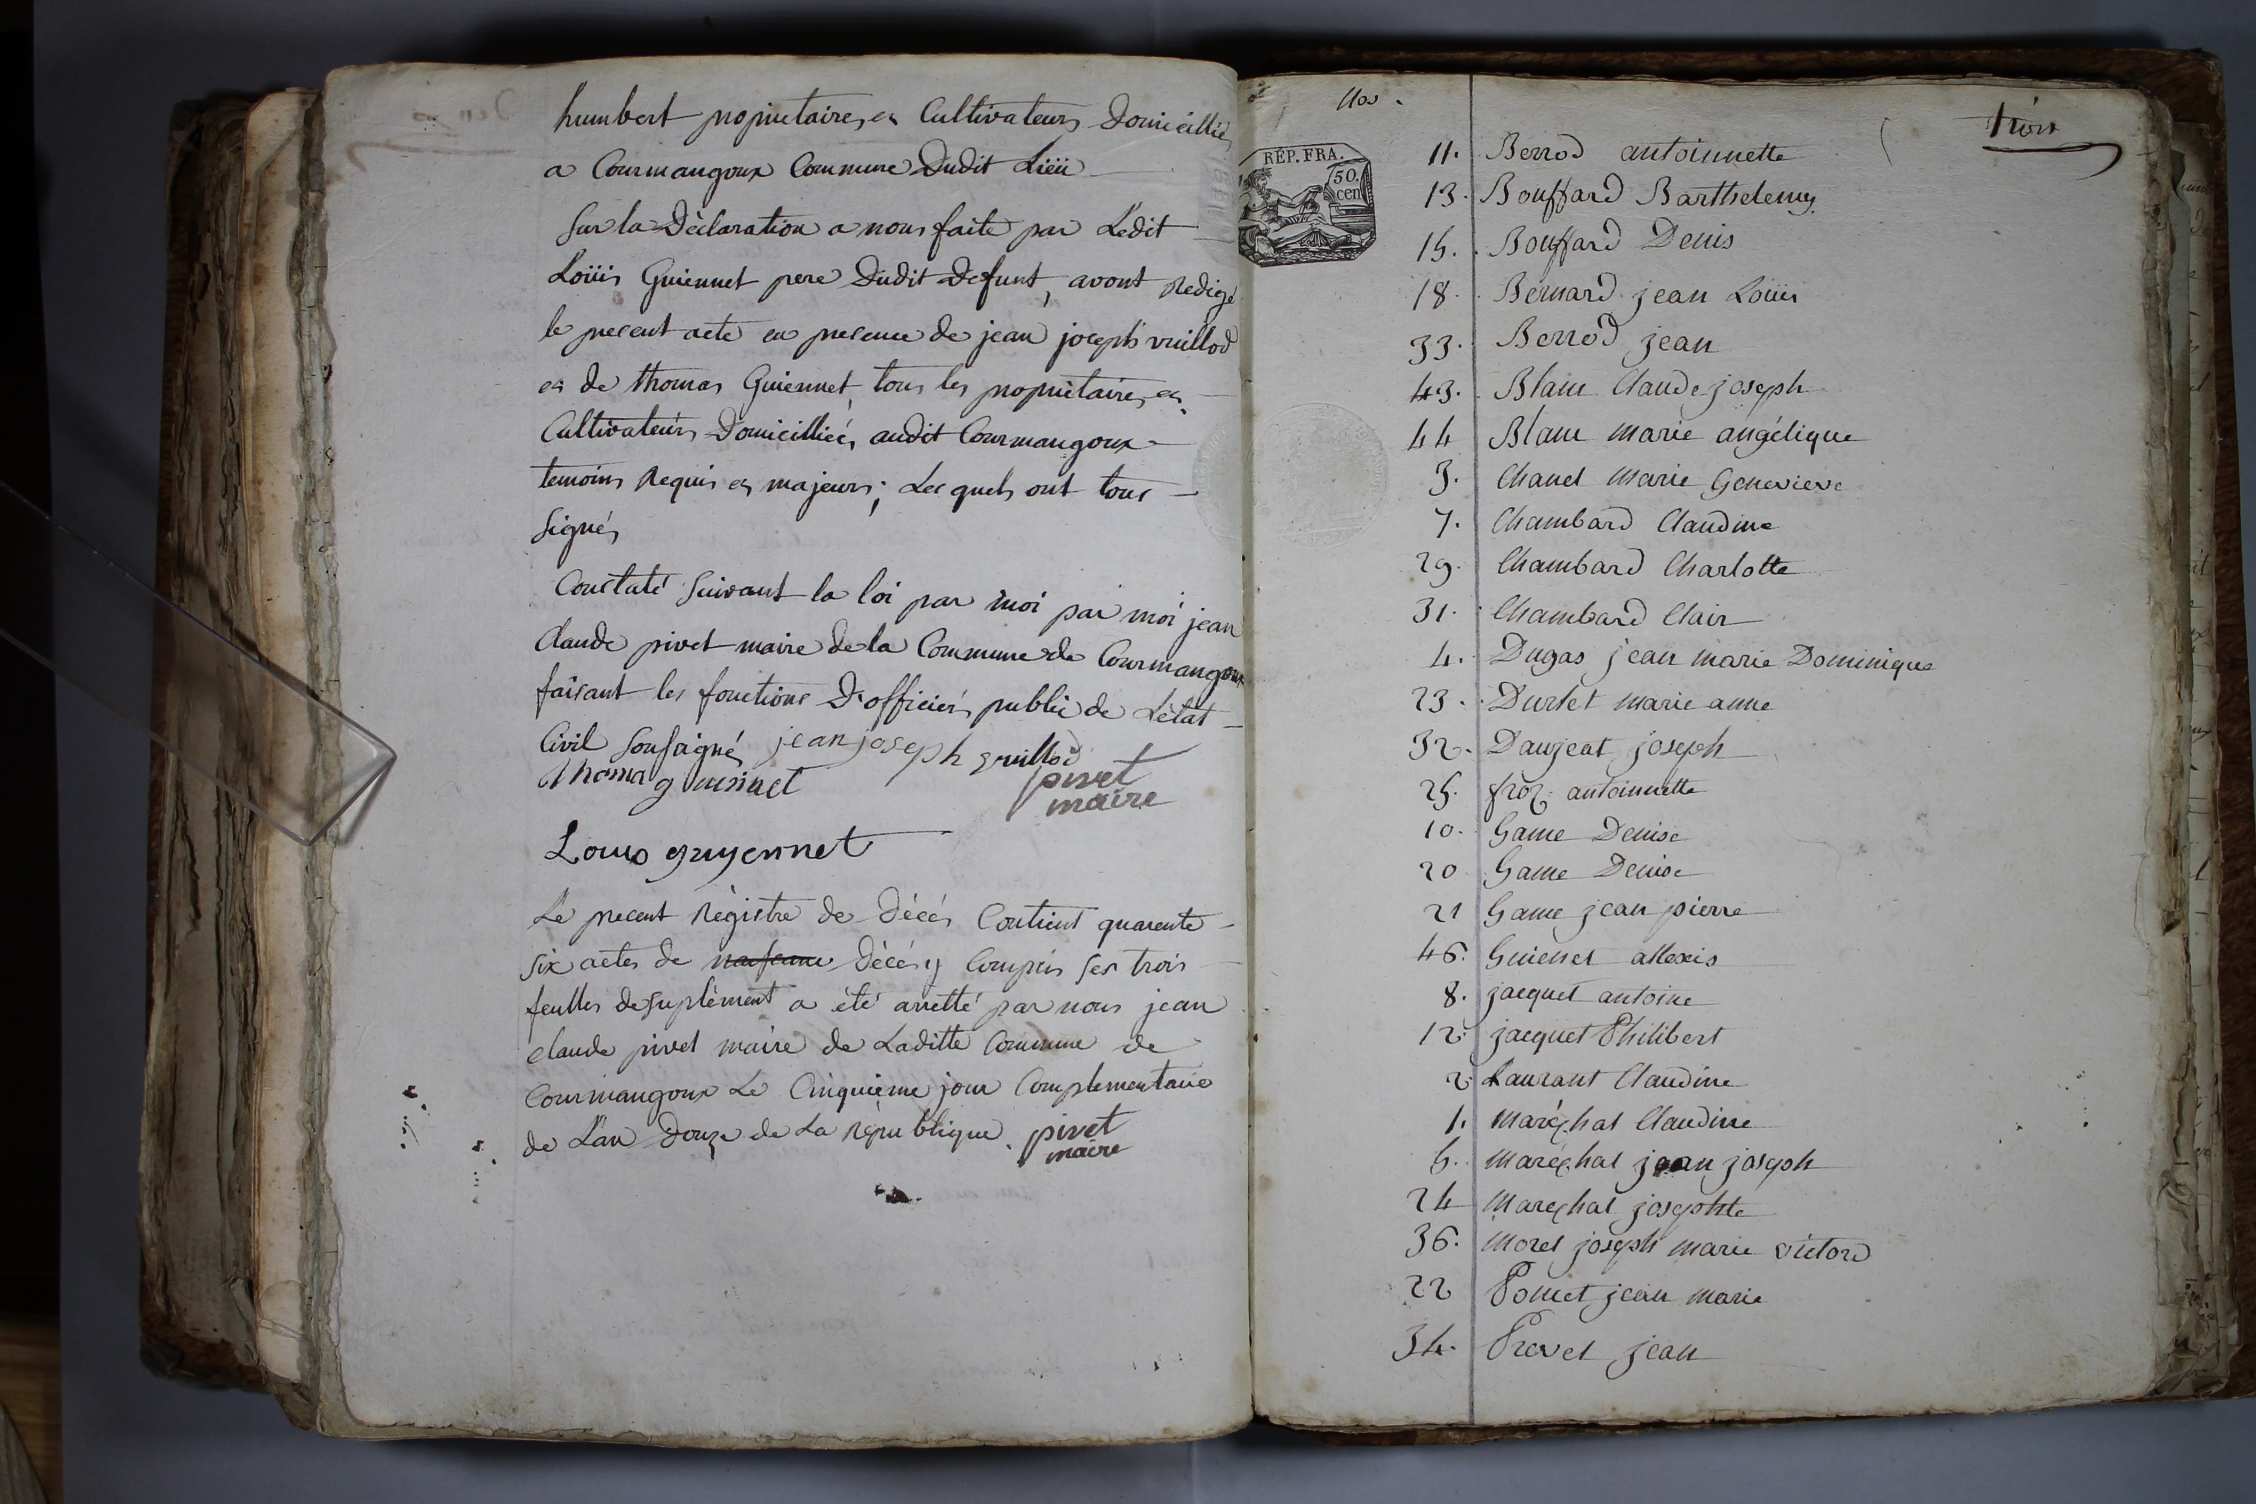 humbert propriétaires et Cultivateurs Domicilliés
a Courmangoux Commune Dudit Lieü
Sur la Déclaration a nous faite par Ledit
Loüis Guiennet pere Dudit Defunt, avont Redigé
le present acte en presence de jean joseph vuillod
et de thomas Guiennet, tous les propriètaires et
Cultivateurs Domicilliés audit Courmangoux
temoins Requis et majeurs; Les quels ont tous
Signés
Constaté Suivant la loi par moi par moi jean
Claude pivet maire de la Commune de Courmangoux
faisant les fonctions D'officiers public de L'état
Civil Soussigné jean joseph vuillod
Thoma guienet
pivet
maire
Louis guyennet
Le precent Règistre de Décés Contient quarente
six actes de naissance Décés y Compris ses trois
feulles de suplément a été arretté par nous jean
claude pivet maire de Laditte Commune de
Courmangoux Le Cinquième jour Complementaire
de L'an Douze de La République. pivet
maire
Nos.
trois
REP. FRA.
50.
cen
11. Berrod antoinnette
13. Bouffard Barthelemy
15. Bouffard Denis
18. Bernard jean Loüis
33. Berrod jean
43. Blanc Claude joseph
44 Blanc marie angélique
3. Chanel marie Genevieve
7. Chambard Claudine
29. Chambard Charlotte
31. Chambard Clair
4. Dugas jean marie Dominique
23. Durlet marie anne
32. Daujeat joseph
25. froz antoinnette
10. Game Denise
20 Game Denise
21 Game jean pierre
46. Guienet allexis
8. jacquet antoine
12. jacquet Philibert
2. Laurant Claudine
1. maréchal Claudine
5. maréchal jean joseph
24 maréchal josephte
36. morel joseph marie victore
22 Pomet jean marie
34. Prevel jean